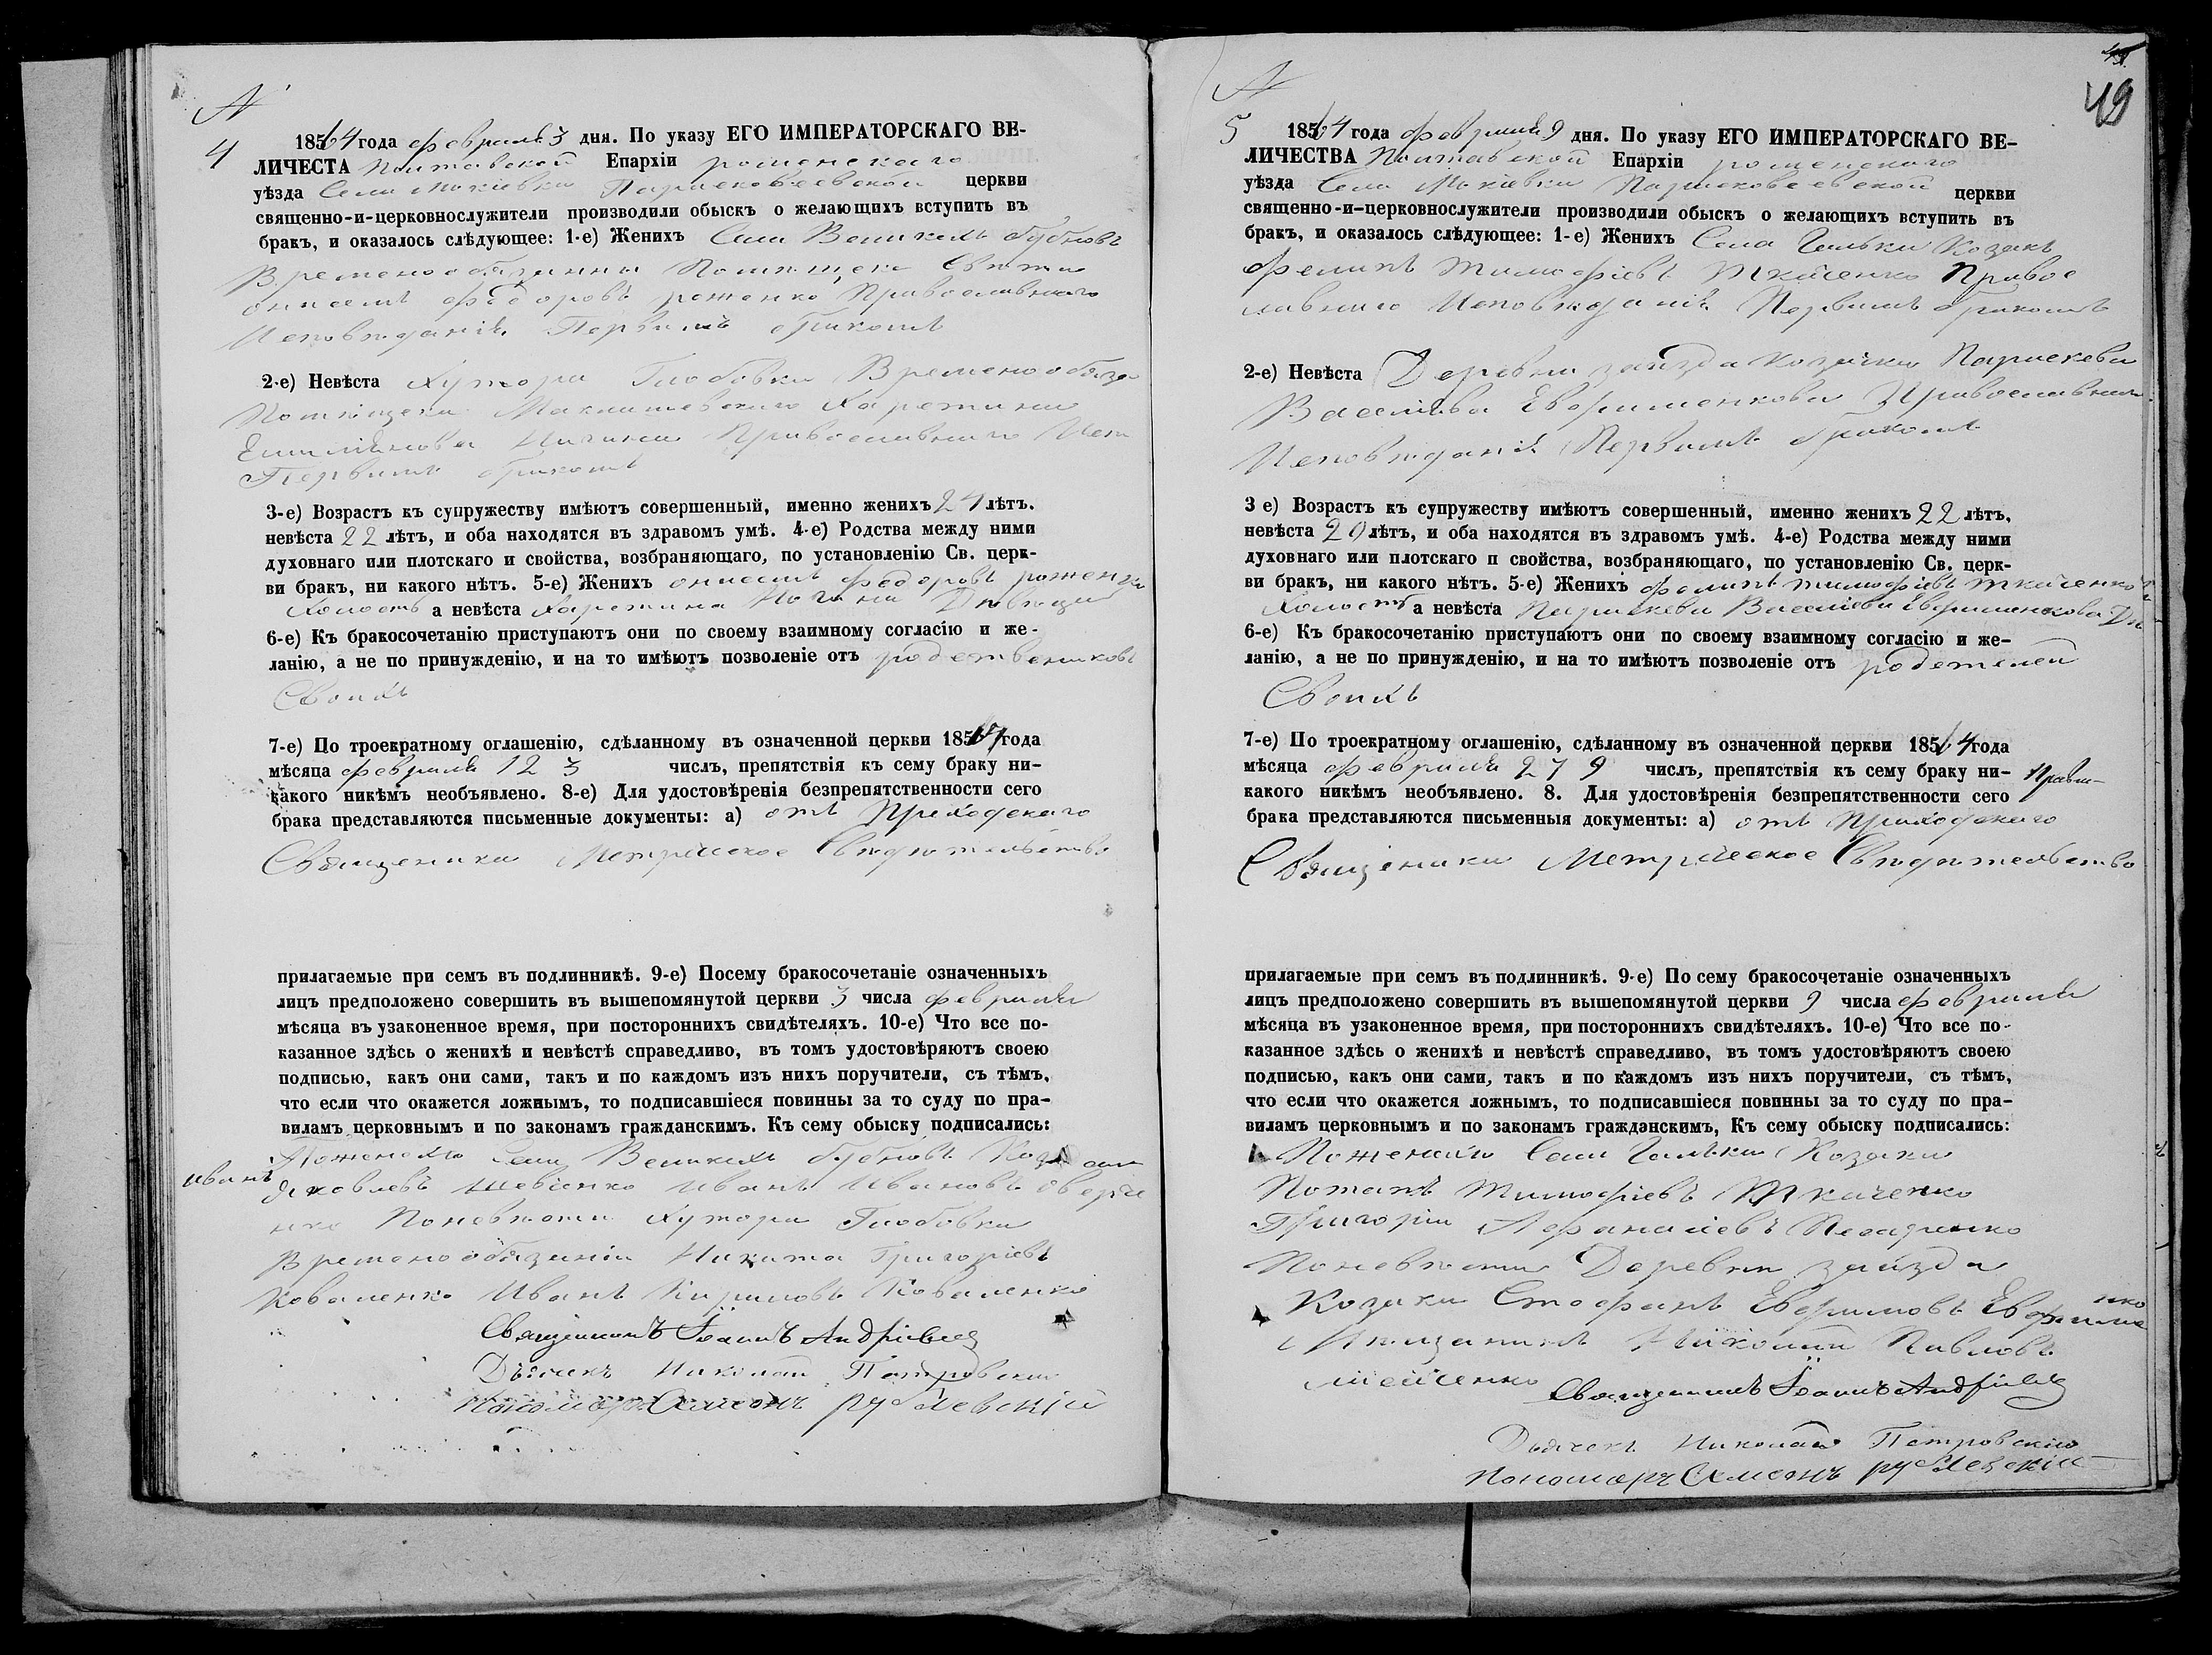 №
4
1864 года февраля 3 дня. По указу ЕГО ИМПЕРАТОРСКАГО ВЕ-
ЛИЧЕСТА Полтавской Епархіи роменскаго
уѣзда Села Мокіевки Парасковеевской церкви
священно-и-церковнослужители производили обыскъ о желающихъ вступить въ
бракъ, и оказалось слѣдующее: 1-е) Женихъ Села Великихъ бубновъ
Временообязанны Помѣщека
онисемъ федоровъ роженко Православнаго
Исповѣданія Первымъ бракомъ
2-е) Невѣста Хутора Глобовки Временообяза
Помѣщека Харетина
Емиліянова Православнаго Исп
Первымъ бракомъ
3-е) Возрастъ къ супружеству имѣютъ совершенный, именно женихъ 24 лѣтъ.
невѣста 22 лѣтъ, и оба находятся въ здравомъ умѣ. 4-е) Родства между ними
духовнаго или плотскаго и свойства, возбраняющаго, по установленію Св. церк-
ви бракъ, ни какого нѣтъ. 5-е) Женихъ онисемъ федоровъ роженко
Холостъ а невѣста Харетина Дѣвица
6-е) Къ бракосочетанію приступаютъ они по своему взаимному согласію и же-
ланію, а не по принужденію, и на то имѣютъ позволеніе отъ родствениковъ
Своихъ
7-е) По троекратному оглашенію, сдѣланному въ означенной церкви 1864 года
мѣсяца февраля 1 2 3 числъ, препятствія къ сему браку ни-
какого никѣмъ необъявлено. 8-е) Для удостовѣренія безпрепятственности сего
брака представляются письменные документы: а) отъ Приходскаго
Священика Метрическое Свѣдѣтельство
прилагаемые при семъ въ подлинникѣ. 9-е) Посему бракосочетаніе означенныхъ
лицъ предположено совершить въ вышепомянутой церкви 3 числа февраля
мѣсяца въ узаконенное время, при постороннихъ свидѣтеляхъ. 10-е) Что все по-
казанное здѣсь о женихѣ и невѣстѣ справедливо, въ томъ удостовѣряютъ своею
подписью, какъ они сами, такъ и по каждомъ изъ нихъ поручители, съ тѣмъ,
что если что окажется ложнымъ, то подписавшіеся повинны за то суду по пра-
виламъ церковнымъ и по законамъ гражданскимъ. Къ сему обыску подписались:
Поженеху Села Великихъ бубновъ
иванъ Яковлевъ Шевченко иванъ ивановъ
Поневѣсти Хутора Глобовки
Временообязаніи Никита Григоріевъ
Коваленко Иванъ Кириловъ Коваленко
Священникъ Іоаннъ Андріевся
Дьячекъ Николай Петровскій
Пономарь Симеонъ рублевскій
49
№
5
1864 года февраля 9 дня. По указу ЕГО ИМПЕРАТОРСКАГО ВЕ-
ЛИЧЕСТВА Полтавской Епархіи роменскаго
уѣзда Села Мокіевки Парасковеевской церкви
священно-и-церковнослужители производили обыскъ о желающихъ вступить въ
бракъ, и оказалось слѣдующее: 1-е) Женихъ Села Гальки Козакъ
филипъ тимофіевъ ткаченко Правос
лавнаго Исповѣданія Первымъ бракомъ
2-е) Невѣста Деревни заизда козачка Параскева
Василіева Евфименкова Православнаго
Исповѣданія Первымъ бракомъ
3 е) Возрастъ къ супружеству имѣютъ совершенный, именно женихъ 22 лѣтъ,
невѣста 20 лѣтъ, и оба находятся въ здравомъ умѣ. 4-е) Родства между ними
духовнаго или плотскаго п свойства, возбраняющаго, по установленію Св. церк-
ви бракъ, ни какого нѣтъ. 5-е) Женихъ филипъ тимофіевъ ткаченко
Холостъ а невѣста Параскева Василіева Евфименкова Дѣ
6-е) Къ бракосочетанію приступаютъ они по своему взаимному согласію и же-
ланію, а не по принужденію, и на то имѣютъ позволеніе отъ родетелей
Своихъ
7-е) По троекратному оглашенію, сдѣланному въ означенной церкви 1864 года
мѣсяца февраля 2 7 9 числъ, препятствія къ сему браку ни-
какого никѣмъ необъявлено. 8. Для удостовѣренія безпрепятственности сего
брака представляются письменныя документы: а) отъ Приходскаго
Священика Метрическое Свѣдѣтельство
прилагаемые при семъ въ подлинникѣ. 9-е) По сему бракосочетаніе означенныхъ
лицъ предположено совершить въ вышепомянутой церкви 9 числа февраля
мѣсяца въ узаконенное время, при постороннихъ свидѣтеляхъ. 10-е) Что все по-
казанное здѣсь о женихѣ и невѣстѣ справедливо, въ томъ удостовѣряютъ своею
подписью, какъ они сами, такъ и по каждомъ изъ нихъ поручители, съ тѣмъ,
что если что окажется ложнымъ, то подписавшіеся повинны за то суду по пра-
виламъ церковнымъ и по законамъ гражданскимъ, Къ сему обыску подписались:
Поженеху Села Гальки Козаки
Потапъ Тимофіевъ Ткаченко
Григорій Афанасіевъ
Поневѣсти Деревни заизда
Козаки Стефанъ Евфимовъ Евфименко
Мѣщанинъ Николай Павловъ
Священникъ Іоаннъ Андріевся
Дьячекъ Николай Петровскій
Пономарь Симеонъ рублевскій